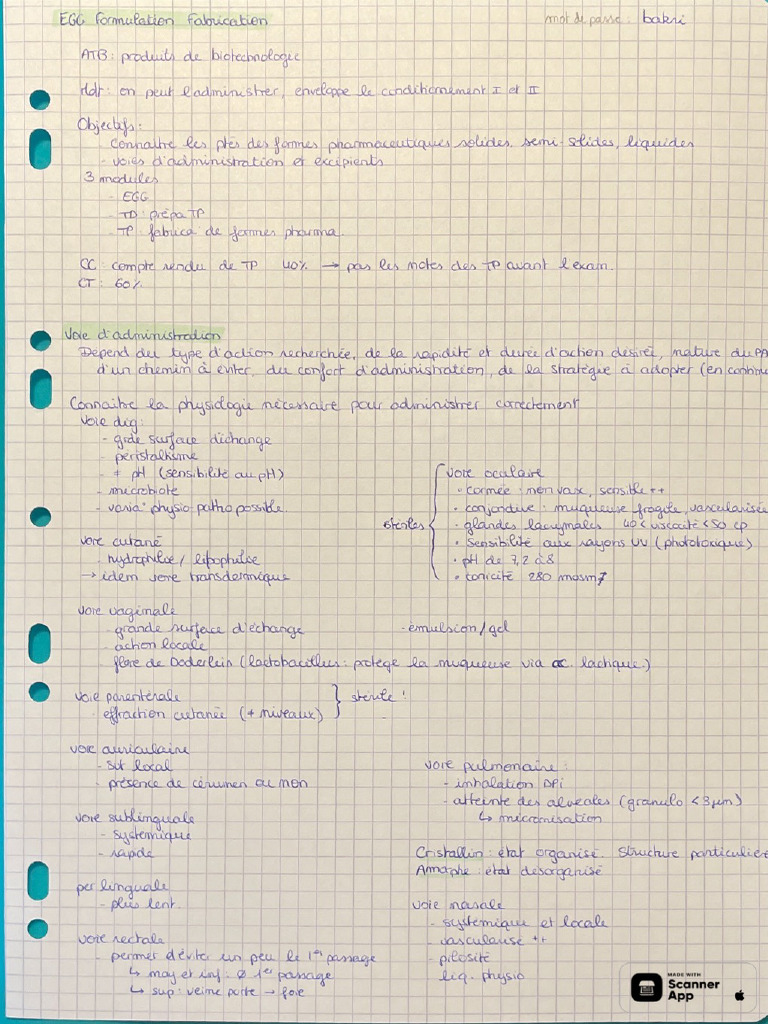 EGG Formulation Fabrication
mot de passe : bakri
ATB : produits de biotechnologie
on peut l'administrer, enveloppe le conditionnement I et II
Objectifs :
connaître les ptés des formes pharmaceutiques solides, semi-solides, liquides
- voies d'administration et excipients
3 modules
- EGG
- TD : prépa TP
- TP : fabrica° de formes pharma.
CC : compte rendu de TP 40% → pas les notes des TP avant l'exam.
CT : 60%
Voie d'administration
Dépend du type d'action recherchée, de la rapidité et durée d'action désiré, nature du PA
d'un chemin à éviter, du confort d'administration, de la stratégie à adopter (en continu
Connaître la physiologie nécessaire pour administrer correctement
voie dig :
- gde surface d'échange
- péristaltisme
- ≠ pH (sensibilité au pH)
- microbiote
- varia° physio-patho possible.
voie cutané
- hydrophilie / lipophilie
→ idem voie transdermique
stériles
voie oculaire
• cornée : non vax, sensible ++
• conjonctive : muqueuse fragile, vascularisée
• glandes lacrymales 40 < viscosité < 50 cp
• sensibilité aux rayons UV (phototoxique)
• pH de 7,2 à 8
• tonicité 280 mosm
voie vaginale
- grande surface d'échange
- émulsion/gel
- action locale
- flore de Doderlein (lactobacillus : protège la muqueuse via ac. lactique)
voie parentérale
- effraction cutanée (≠ niveaux)
stérile !
voie auriculaire
- local
- présence de cérumen ou non
voie sublinguale
- systémique
- rapide
per linguale
- plus lent.
voie rectale
- permet d'éviter un peu le 1er passage
↳ moy et inf : ∅ 1er passage
↳ sup : veine porte → foie
voie pulmonaire :
- inhalation
- atteinte des alvéoles (granulo < 3 µm)
↳ micronisation
Cristallin : état organisé. Structure particulière
Amorphe : état désorganisé
voie nasale
- systémique et locale
- vascularisé ++
- pilosité
liq. physio
MADE WITH
Scanner
App